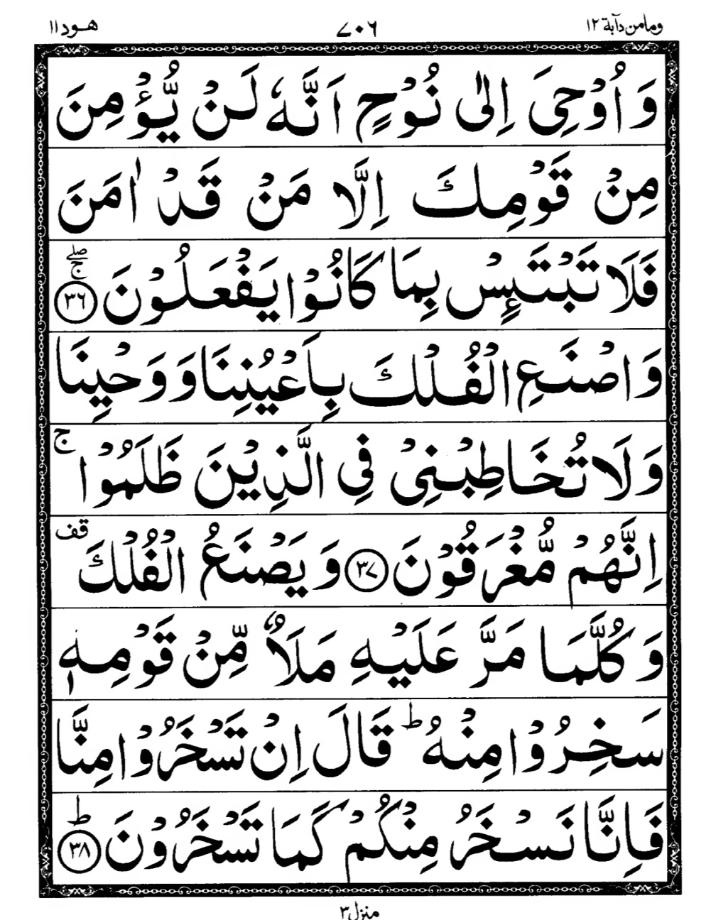 وما من دآبة ١٢ ٧٠٦ هود ١١
وَ اُوْحِیَ اِلٰی نُوْحٍ اَنَّهٗ لَنْ یُّؤْمِنَ
مِنْ قَوْمِكَ اِلَّا مَنْ قَدْ اٰمَنَ
فَلَا تَبْتَىِٕسْ بِمَا كَانُوْا یَفْعَلُوْنَ ۖۚ ﴿٣٦﴾
وَ اصْنَعِ الْفُلْكَ بِاَعْیُنِنَا وَ وَحْیِنَا
وَ لَا تُخَاطِبْنِیْ فِی الَّذِیْنَ ظَلَمُوْا ۚ
اِنَّهُمْ مُّغْرَقُوْنَ ﴿٣٧﴾ وَ یَصْنَعُ الْفُلْكَ قف
وَ كُلَّمَا مَرَّ عَلَیْهِ مَلَاٌ مِّنْ قَوْمِهٖ
سَخِرُوْا مِنْهُ ؕ قَالَ اِنْ تَسْخَرُوْا مِنَّا
فَاِنَّا نَسْخَرُ مِنْكُمْ كَمَا تَسْخَرُوْنَ ؕ ﴿٣٨﴾
منزل ٣